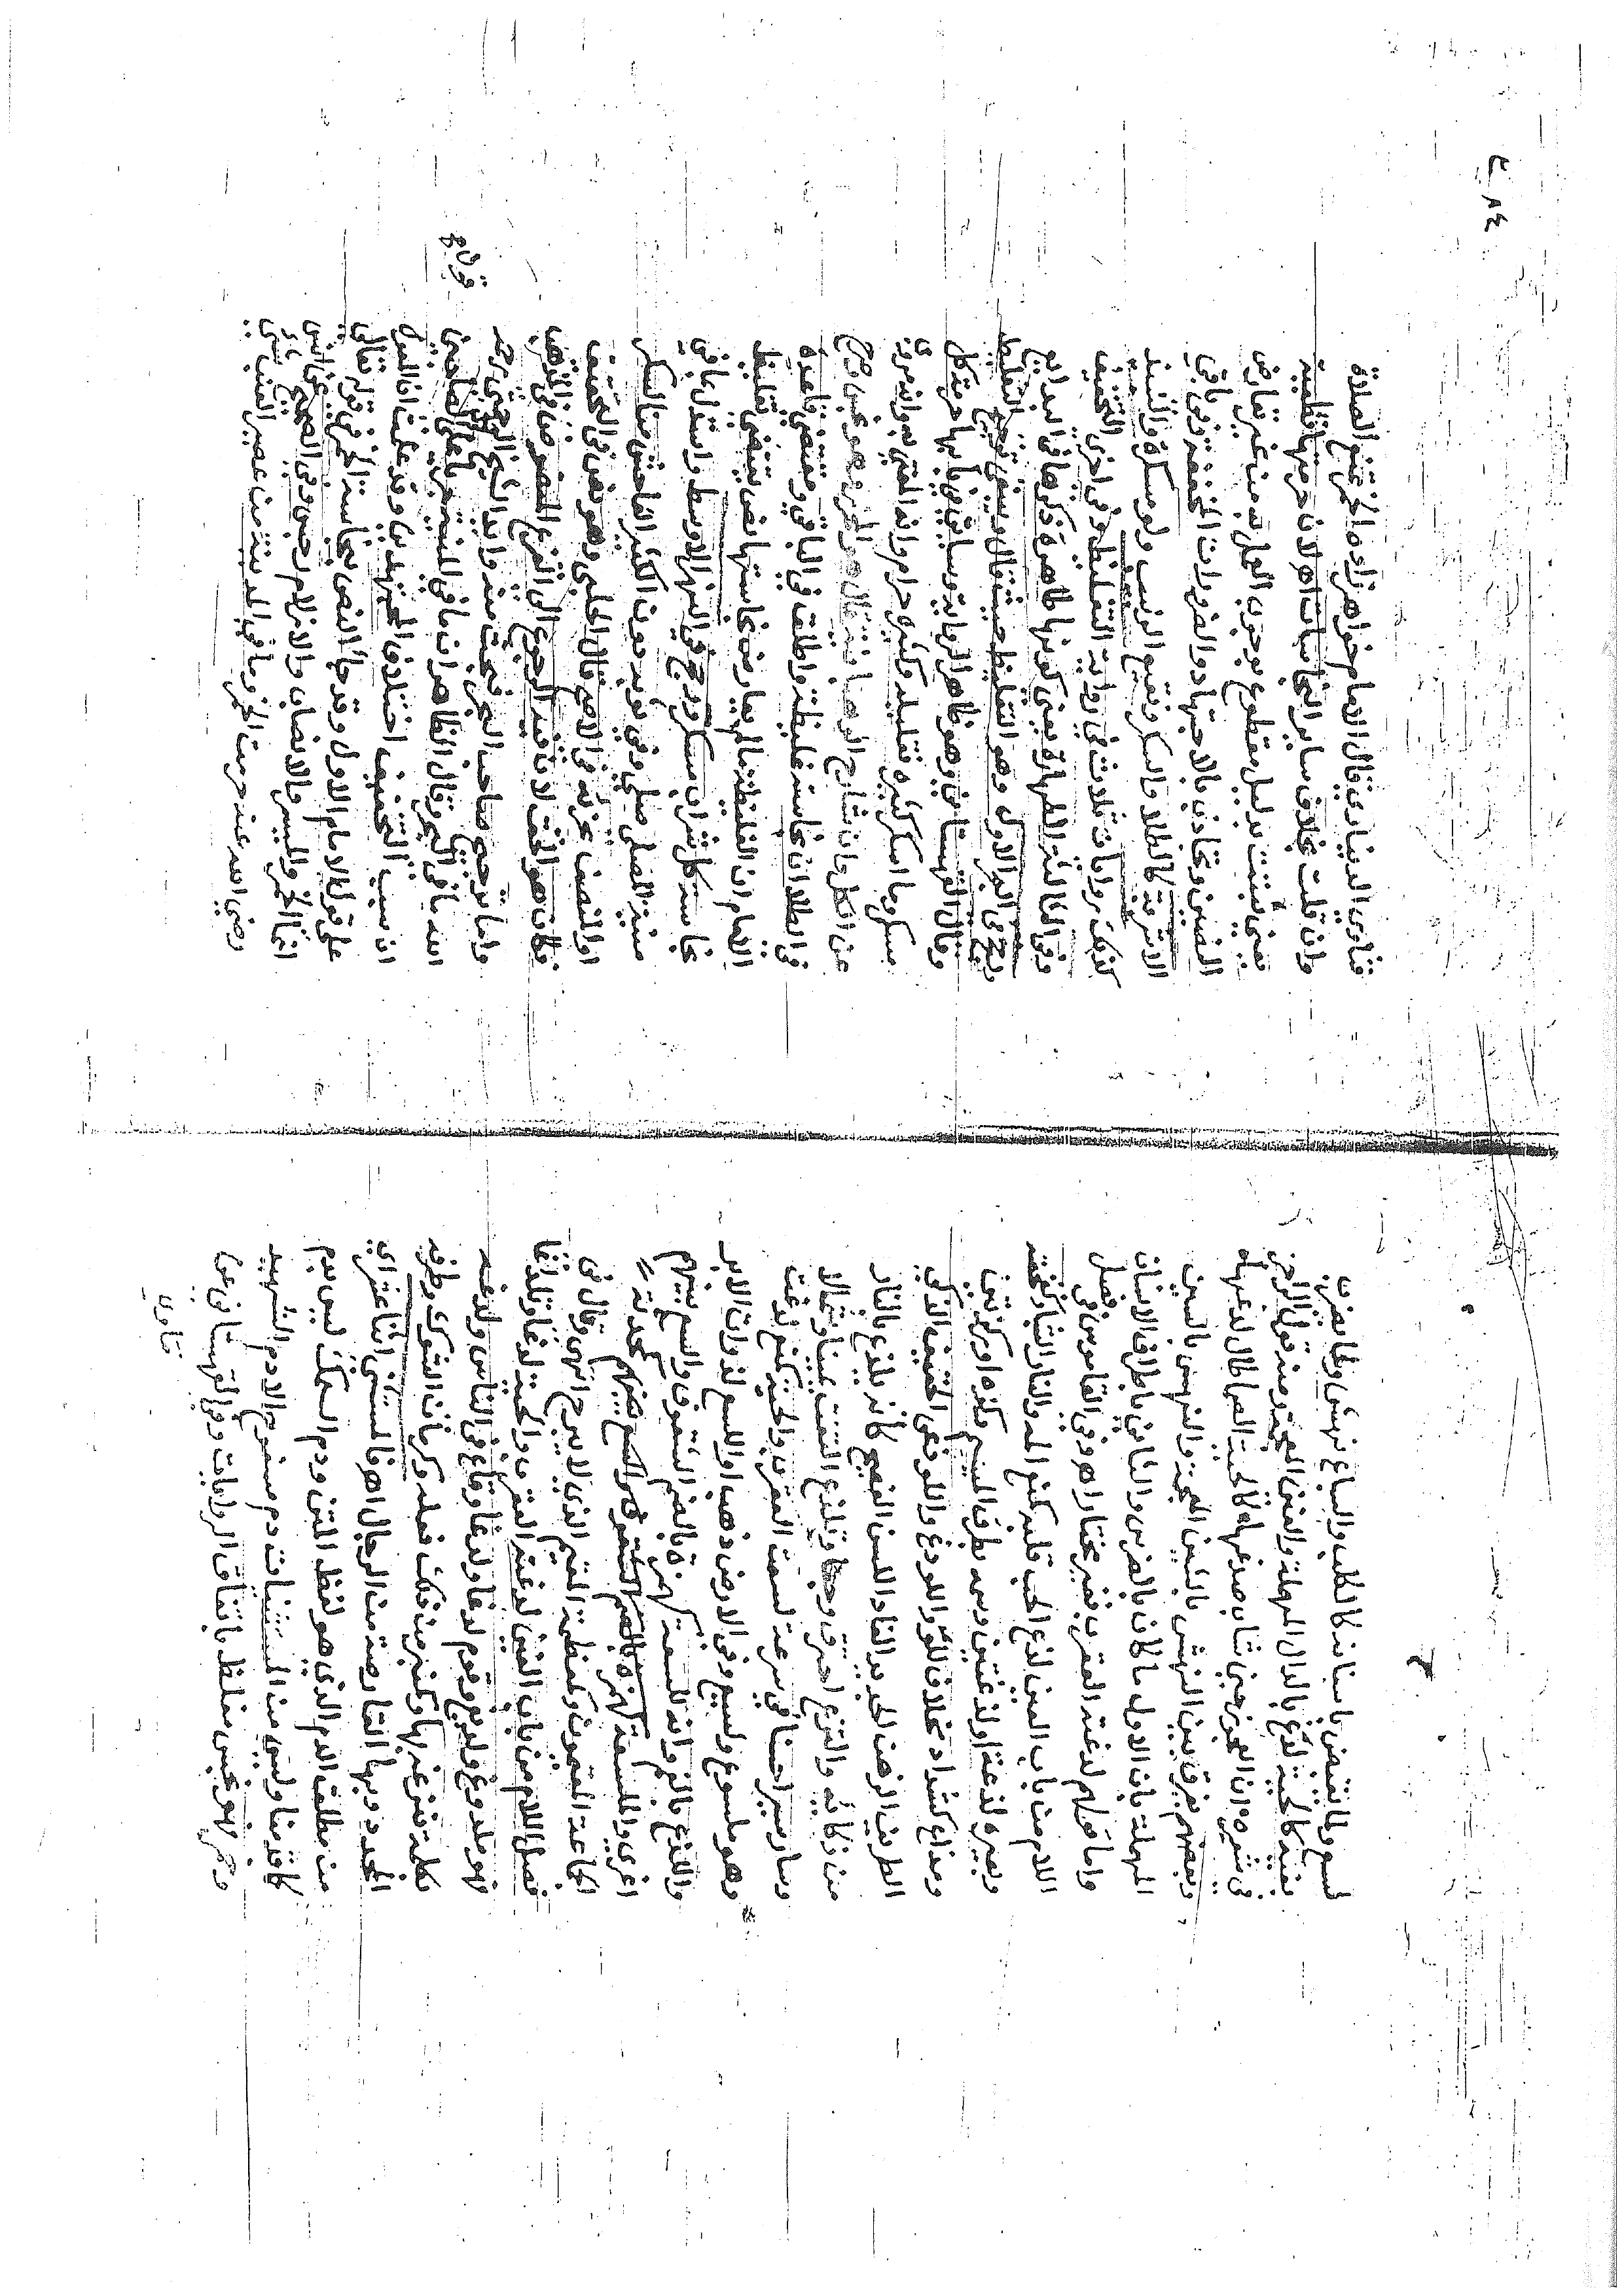 لسع ولما يقبض باسنانه كالكلب والسباع نهش ولما يضرب
بفيه كالحية لدغ بالدال المهملة والغين المعجمة ومنه قول الراجز
في شعره ان العجوز حين شاب صدغها كالحية الصما طال لدغها
وبعضهم يفرق بين النهش بالشين المعجمة والنهس بالسين
المهملة بان الاول ما كان بالضرس والثاني باطراف الاسنان
واما قولهم لدغته العقرب فغير مختار اهـ وفي القاموس في فصل
اللام من باب العين لذع الحب قلبه كمنع المه والنار الشي لفحته
وبعيره لذعة او لذعتين وسمه بطرف الميسم
ومذاع كشداد مخلاف للوعد واللوذع واللوذعي الخفيف الذكي
الظريف الذهن الحديد الفؤاد اللسن الفصيح كانه يلذع بالنار
من ذكايه والتذع احترق وجعا وتلذع التفت يمينا وشمالا
وسار سيرا حسنا في سرعة لسعت العقرب والحية كمنع لدغت
وهو ملسوع ولسيع وفي الارض ذهب او اللسع لذوات الابر
واللدغ بالفم وانه للسعة كهمزة
اغرى والملسعة
الجماعة المقيمون وكمعظمة المقيم الذي لا يبرح انتهى وقال في
فصل اللام من باب الغين لدغته العقرب والحية لدغا وتلداغا
فهو ملدوغ ولديغ وقوم لدغا وقاع في الناس ولدغه
بكلمة نزغه بها وكمنبر من ذلك فعله وكزمان الشوك وطرفه
المحدد وبها القارصة من الرجال اهـ فالمستثنى اثنا عشر اي
من مطلق الدم الذي هو لفظ المتن ودم السمك ليس بدم
كما قدمنا وليس من المستثنيات دم مسفوح الا دم الشهيد
وخمر فهو نجس مغلظ باتفاق الروايات وفي القهستاني عن
فتاوى
٨٤
فتاوى الدينارى قال الامام خواهر زاده الخمر تمنع الصلاة
وان قلت بخلاف ساير النجاسات اهـ لان حرمتها قطعية
يعني ثبتت بدليل مقطوع بوجوب العمل به من غير تعارض
النصين وتجاذب بالاجتهاد والضرورات المخففة وفي باقي
الاشربة كالطلا والسكر ونقيع الزبيب ولو مسكرة والنبيذ
كذلك روايات ثلاث في رواية التغليظ وفي اخرى التخفيف
وفي الثالثة الطهارة يعني كونها طاهرة ذكرها في البدايع
ورجح في البحر الاول وهو التغليظ حيث قال وينبغي ترجيح التغليظ
وقال القهستاني وهو ظاهر الرواية وسياتي في بابها حرمة كل
مسكر وما اسكر كثيره فقليله وكثيره حرام وانه المفتى به وانه مروي
عن الكل وان شارح الوهبانية قال هو والخمر
في الطلا ان نجاسته غليظة واطلق في الباقي ومقتضى قاعدة
الامام ان الغليظة ما لم يعارض نجاستها نص يقتضي تغليظ
نجاسة كل شراب مسكر ورجح في النهر الاوسط واستدل بما في
منية المصلي صلى وفي ثوبه دون الكثير الفاحش من السكر
او المنصف تجزيه في الاصح قال الحلبي وهو نص في التخفيف
فكان هو الحق لان فيه الرجوع الى الفرع المنصوص في المذهب
واما ترجيح صاحب البحر فبحث منه
انه ما في البحر وقال الظاهر ان ما في المنية
ان سبب التخفيف اختلاف المجتهدين وقد علمت ان القول
على قول الامام الاول وقد جا النص بنجاسة الخمر في قوله تعالى
انما الخمر والميسر والانصاب والازلام رجس وفي الصحيح عن انس
رضي الله عنه حرمت الخمر وما في المدينة من عصير العنب شي